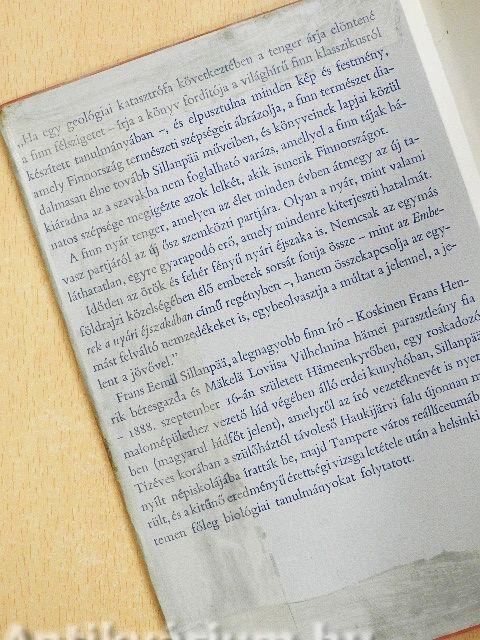 „Ha egy geológiai katasztrófa következtében a tenger árja elöntené
a finn félszigetet – írja a könyv fordítója a világhírű finn klasszikusról
készített tanulmányában –, és elpusztulna minden kép és festmény,
amely Finnország természeti szépségeit ábrázolja, a finn természet dia-
dalmasan élne tovább Sillanpää műveiben, és könyveinek lapjai közül
kiáradna az a szavakba nem foglalható varázs, amellyel a finn tájak há-
natos szépsége megigézte azok lelkét, akik ismerik Finnországot.
A finn nyár tenger, amelyen az élet minden évben átmegy az új ta-
vasz partjáról az új ősz szemközti partjára. Olyan a nyár, mint valami
láthatatlan, egyre gyarapodó erő, amely mindenre kiterjeszti hatalmát.
Időtlen az örök és fehér fényű nyári éjszaka is. Nemcsak az egymás
földrajzi közelségében élő emberek sorsát fonja össze – mint az Embe-
rek a nyári éjszakában című regényben –, hanem összekapcsolja az egy-
mást felváltó nemzedékeket is, egybeolvasztja a múltat a jelennel, a je-
lent a jövővel.”
Frans Eemil Sillanpää, a legnagyobb finn író – Koskinen Frans Hen-
rik béresgazda és Mäkelä Loviisa Vilhelmina hämei parasztleány fia
– 1888. szeptember 16-án született Hämeenkyröben, egy roskadozó
malomépülethez vezető híd végében álló erdei kunyhóban, Sillanpää
ben (magyarul hídfőt jelent), amelyről az író vezetéknevét is nyer
Tízéves korában a szülőháztól távoleső Haukijärvi falu újonnan m
nyílt népiskolájába íratták be, majd Tampere város reálliceumáb
rült, és a kitűnő eredményű érettségi vizsga letétele után a helsinki
temen főleg biológiai tanulmányokat folytatott.